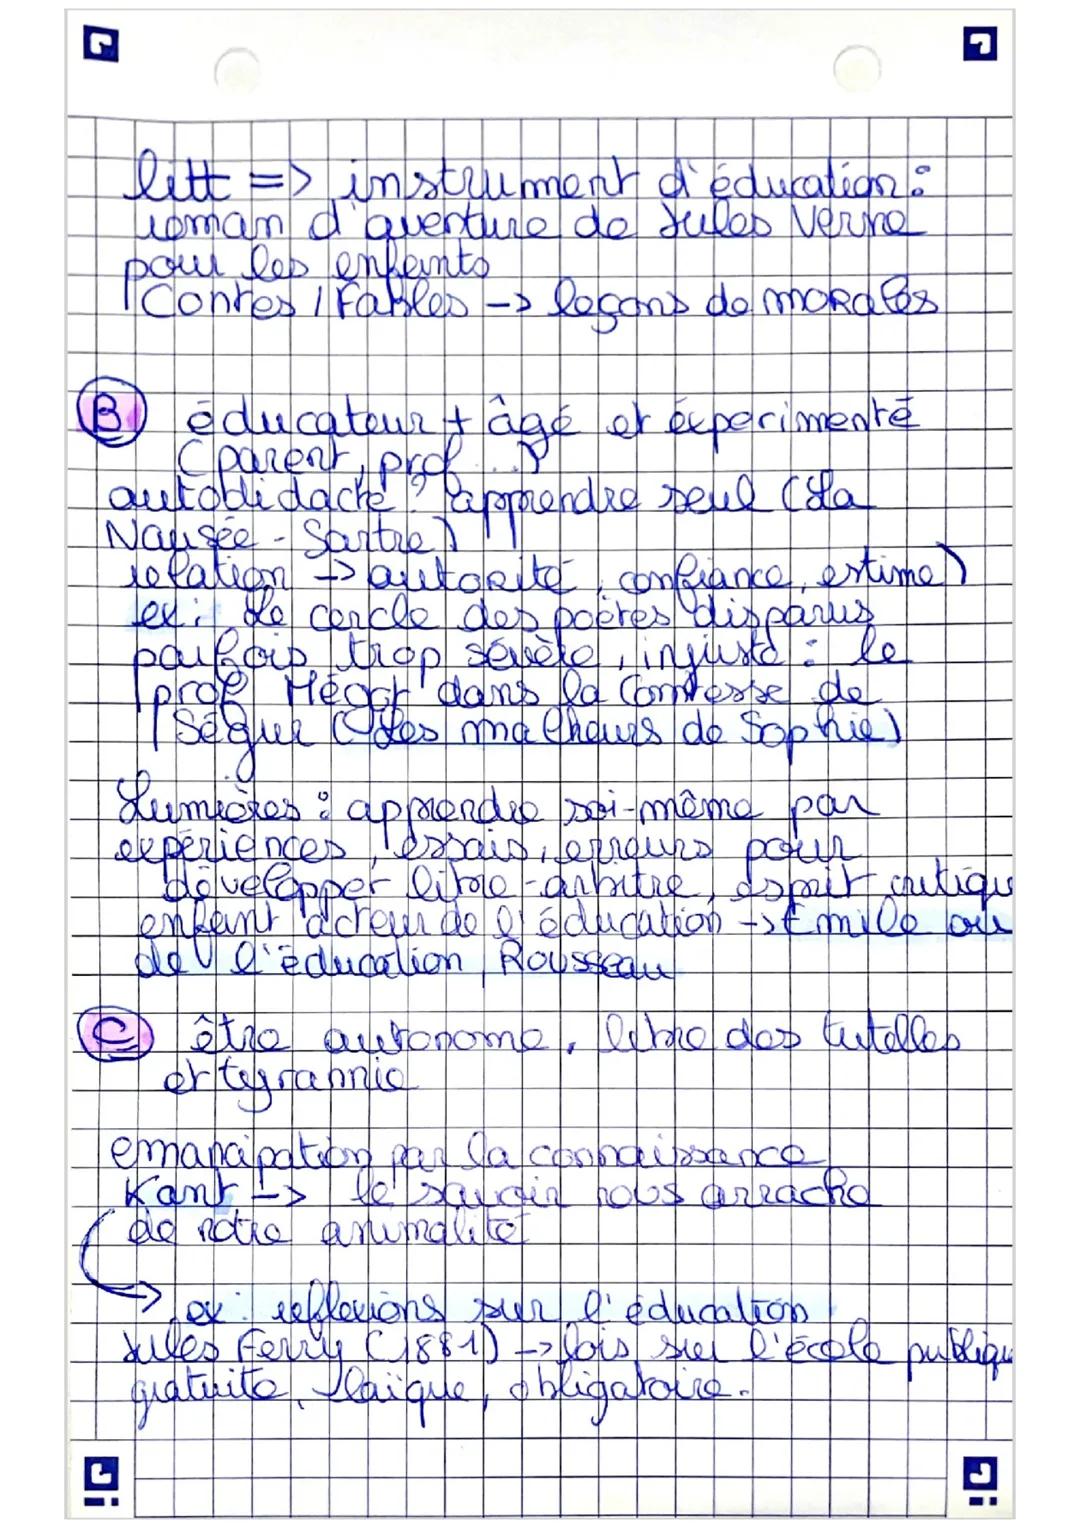 litt => instrument d'éducation :
roman d'aventure de Jules Verne
pour les enfants
Contes / Fables -> leçons de morales
B éducateur + âgé et éxperimenté
(parent, prof ...)
autodidacte : apprendre seul (La
Nausée - Sartre)
relation -> autorité, confiance, estime)
ex: Le cercle des poètes disparus
parfois trop sévère, injuste : le
prof Hégor dans la Comtesse de
Ségur (Les malheurs de Sophie)
Lumières : apprendre soi-même par
expériences, essais, erreurs pour
développer libre-arbitre, esprit critiqu
enfant acteur de l'éducation -> Emile ou
de l'éducation, Rousseau
C être autonome, libre des tutelles
et tyrannie
emancipation par la connaissance
Kant -> le savoir nous arrache
de notre animalité
-> ex: reflexions sur l'éducation
Jules Ferry (1881) -> lois sur l'école publiqu
gratuite, laïque, obligatoire.